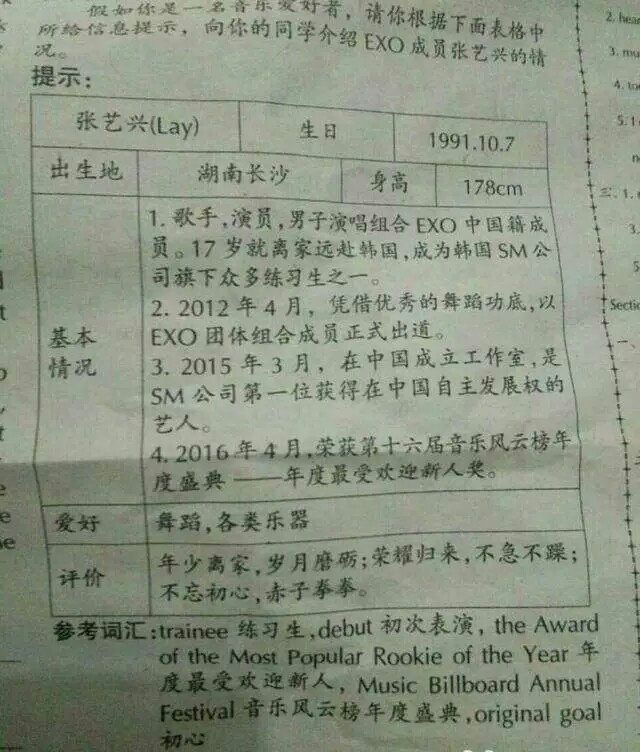 假如你是一名音乐爱好者，请你根据下面表格中
所给信息提示，向你的同学介绍 EXO 成员张艺兴的情
况。
提示：
张艺兴(Lay) 生日 1991.10.7
出生地 湖南长沙 身高 178cm
基本
情况
1. 歌手，演员，男子演唱组合 EXO 中国籍成
员。17 岁就离家远赴韩国，成为韩国 SM 公
司旗下众多练习生之一。
2. 2012 年 4 月，凭借优秀的舞蹈功底，以
EXO 团体组合成员正式出道。
3. 2015 年 3 月，在中国成立工作室，是
SM 公司第一位获得在中国自主发展权的
艺人。
4. 2016 年 4 月，荣获第十六届音乐风云榜年
度盛典 ——年度最受欢迎新人奖。
爱好 舞蹈，各类乐器
评价
年少离家，岁月磨砺；荣耀归来，不急不躁；
不忘初心，赤子拳拳。
参考词汇：trainee 练习生，debut 初次表演，the Award
of the Most Popular Rookie of the Year 年
度最受欢迎新人，Music Billboard Annual
Festival 音乐风云榜年度盛典，original goal
初心
2. head
3. mu
4. to
5. I
三. 1.
3.
5.
Section
一、
1.
2.
3.
4.